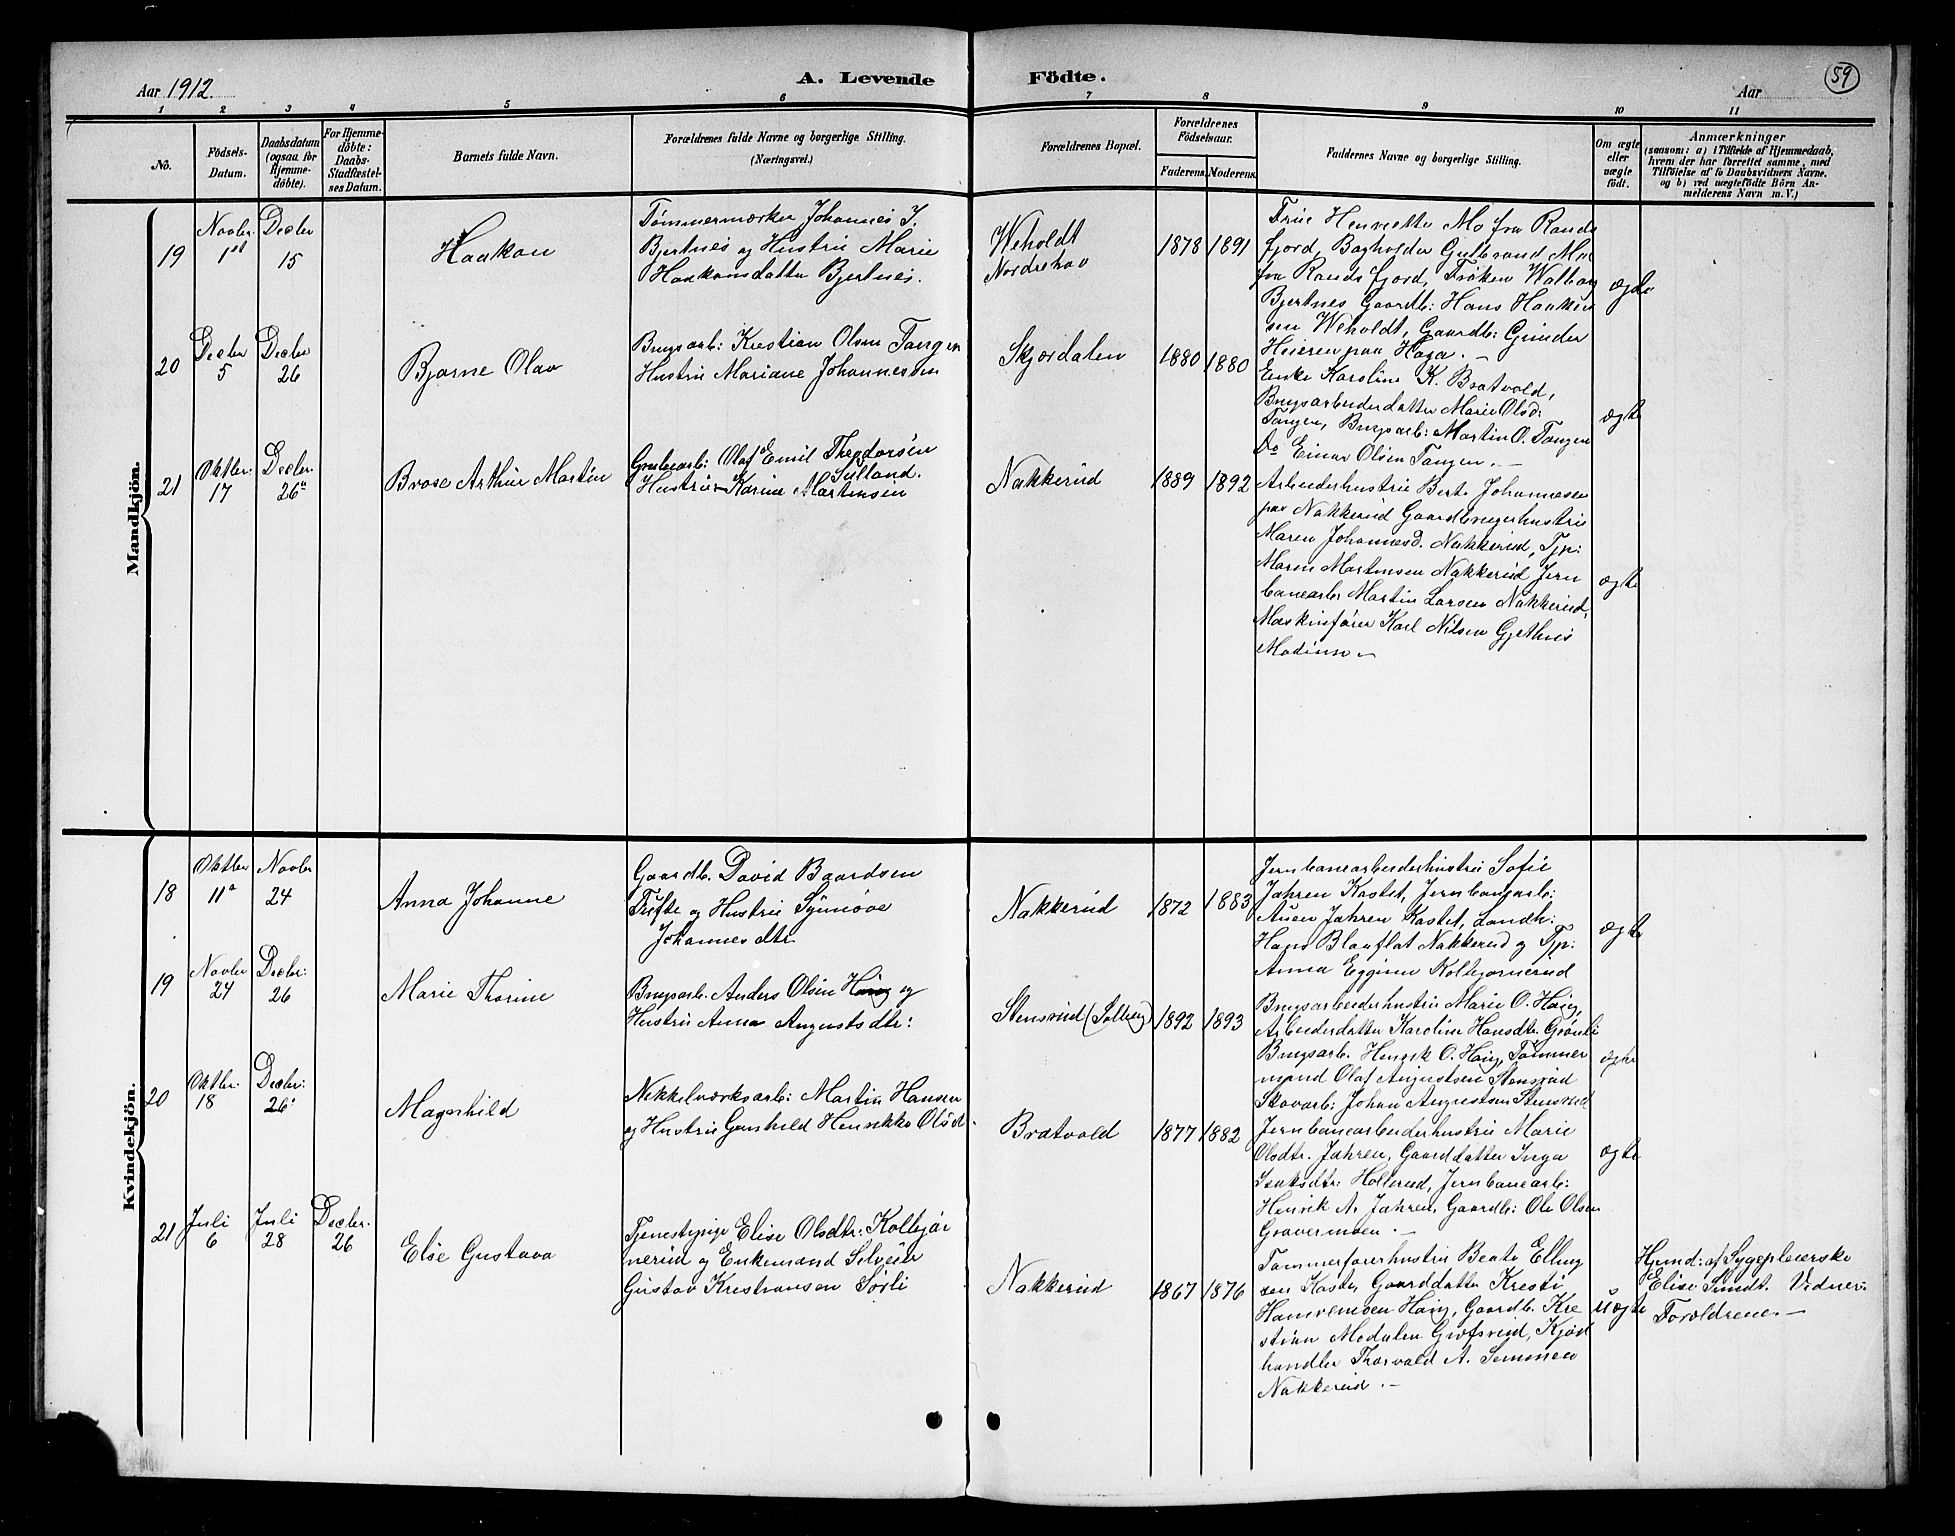 Aar 1912.
A. Levende Födte.
Aar
59
1 2 3 4 5 6 7 8 9 10 11
No.
Födsels-
Datum.
Daabsdatum
(ogsaa for
Hjemme-
döbte).
For Hjemme-
döbte:
Daabs-
Stadfæstel-
ses Datum.
Barnets fulde Navn.
Forældrenes fulde Navne og borgerlige Stilling.
(Næringsvei.)
Forældrenes Bopæl.
Forældrenes
Födselsaar.
Faderens.
Moderens.
Faddernes Navne og borgerlige Stilling.
Om ægte
eller
uægte
födt.
Anmærkninger
(saasom: a) i Tilfælde af Hjemmedaab,
hvem der har forrettet samme, med
Tilföielse af to Daabsvidners Navne,
og b) ved uægtefödte Börn An-
melderens Navn m. V.)
Mandkjön.
19
Novbr
1ste
Decbr
15
Haakon
Tømmermærker Johannes J.
Bjertnes og Hustru Marie
Haakonsdatter Bjertnes.
Weholdt
Nordrehov
1878
1891
Frue Henriette Mo fra Rands
fjord, Bogholder Gulbrand Mo
fra Randsfjord, Frøken Walborg
Bjertnes Gaardb: Hans Haaken
sen Weholdt, Gaardb: Gunder
Heieren paa Haga. –
ægte
20
Decbr
5
Decbr
26
Bjarne Olav
Brugsarb: Kristian Olsen Tangen
Hustru Mariane Johannessen
Skjærdalen
1880
1880
Enke Karoline K. Bratvold,
Brugsarbeiderdatter Marie Olsd:
Tangen, Brugsarb: Martin O. Tangen
Do Einar Olsen Tangen. –
ægte
21
Oktbr:
17
Decbr:
26
Brose Arthur Martin
Grubearb: Olaf Emil Theodorsen
Sulland.
Hustru Karine Martinsen
Nakkerud
1889
1892
Arbeiderhustru Berte Johannesen
paa Nakkerud Gaardbrugerhustru
Maren Johannesd. Nakkerud, Tjp:
Maren Martinsen Nakkerud Jern
banearb: Martin Larsen Nakkerud,
Maskinfører Karl Nilsen Gjethus
Modum –
ægte
Kvindekjön.
18
Oktber
11
Novbr
24
Anna Johanne
Gaardb. David Baardsen
Tufte og Hustru Synnøve
Johannesdtr.
Nakkerud
1872
1883
Jernbanearbeiderhustru Sofie
Jahren Kastet, Jernbanearb:
Auen Jahren Kastet, Landh:
Hans Blaaflat Nakkerud og Tjp:
Anna Kolbjørnerud
ægte
19
Novbr
24
Decbr:
26
Marie Thorine
Brugsarb. Anders Olsen Haug og
Hustru Anna Augustsdtr:
Stensrud (Solberg)
1892
1893
Brugsarbeiderhustru Marie O. Haug,
Arbeiderdatter Karoline Hansdtr. Grønli
Brugsarb. Henrik O. Haug, Tømmer
mand Olaf Augustsen Stensrud
Skovarb: Johan Augustsen Stensrud
ægte
20
Oktbr:
18
Decbr:
26
Magnhild
Nikkelværksarb: Martin Hansen
og Hustru Gunhild Henrikke Olsd.
Bratvold
1877
1882
Jernbanearbeiderhustru Marie
Olsdtr. Jahren, Gaarddatter Inga
Isaksdtr: Hollerud, Jernbanearb:
Henrik A. Jahren, Gaardb: Ole Olsen
Gravermoen. –
ægte
21
Juli
6
Juli
28
Decbr.
26
Else Gustava
Tjenestepige Elise Olsdtr: Kolbjør
nerud og Enkemand Selveier
Gustav Kristiansen Sørli
Nakkerud
1867
1876
Tømmerførerhustru Beate Elling
sen Kastet, Gaarddatter Kristi
Hansremoen Haug, Gaardb. Kri
stian Modalen Grøfsrud, Kjød
handler Thorvald A. Semmen
Nakkerud. –
uægte
Hjemd: af Sygepleierske
Elise Sundt. Vidner:
Forældrene. –